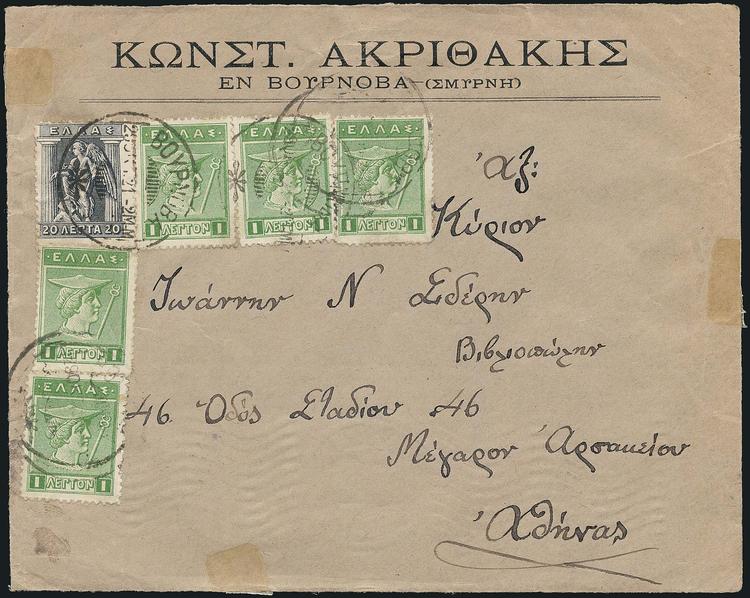 ΚΩΝΣΤ. ΑΚΡΙΘΑΚΗΣ
ΕΝ ΒΟΥΡΝΟΒΑ (ΣΜΥΡΝΗ)
ΕΛΛΑΣ
20 ΛΕΠΤΑ 20
ΕΛΛΑΣ
1 ΛΕΠΤΟΝ 1
ΕΛΛΑΣ
1 ΛΕΠΤΟΝ 1
ΕΛΛΑΣ
1 ΛΕΠΤΟΝ 1
ΒΟΥΡΝΟΒΑ
21-9Μ.Μ
Ἀξ:
Κύριον
Ἰωάννην Ν Σιδέρην
Βιβλιοπώλην
46 Ὁδὸς Σταδίου 46
Μέγαρον Ἀρσακείου
Ἀθήνας
ΕΛΛΑΣ
1 ΛΕΠΤΟΝ 1
ΕΛΛΑΣ
1 ΛΕΠΤΟΝ 1